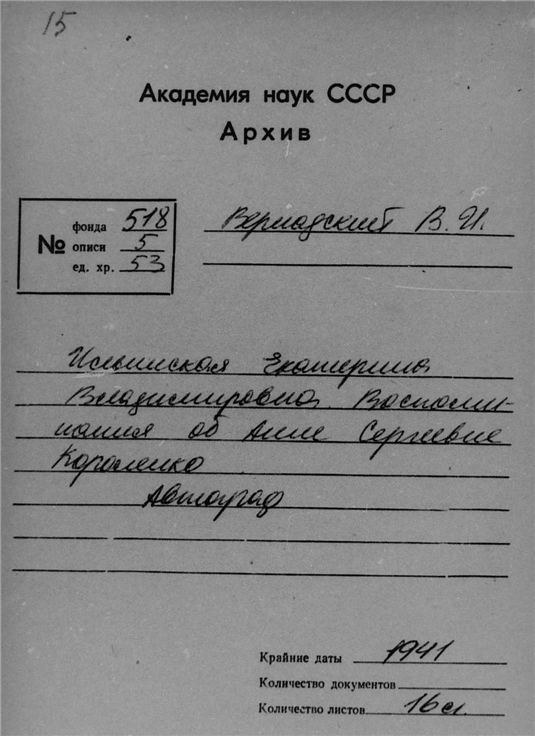 15
Академия наук СССР
Архив
№ фонда 518
описи 5
ед. хр. 53
Вернадский В. И.
Ильинская Екатерина
Владимировна. Воспоми-
нания об Анне Сергеевне
Короленко
Автограф
Крайние даты 1941
Количество документов
Количество листов 16 л.